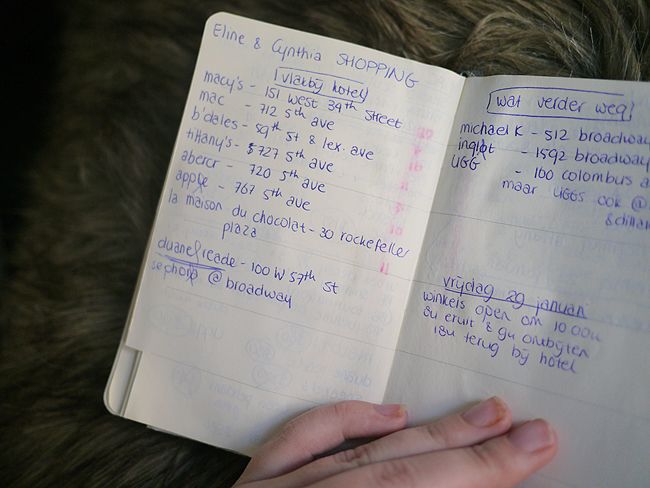 Eline & Cynthia SHOPPING
vlakbij hotel
macy's - 151 west 34th street
mac - 712 5th ave
b'dales - 59th st & lex. ave
tiffany's - 727 5th ave
abercr - 720 5th ave
apple - 767 5th ave
la maison du chocolat - 30 rockefeller
plaza
duane reade - 100 W 57th st
sephora @ broadway
wat verder weg
michael K - 512 broadway
inglot - 1592 broadway
UGG - 160 colombus a
maar UGGS ook @
vrijdag 29 januari
winkels open om 10.00u
8u eruit & 9u ontbijten
18u terug bij hotel